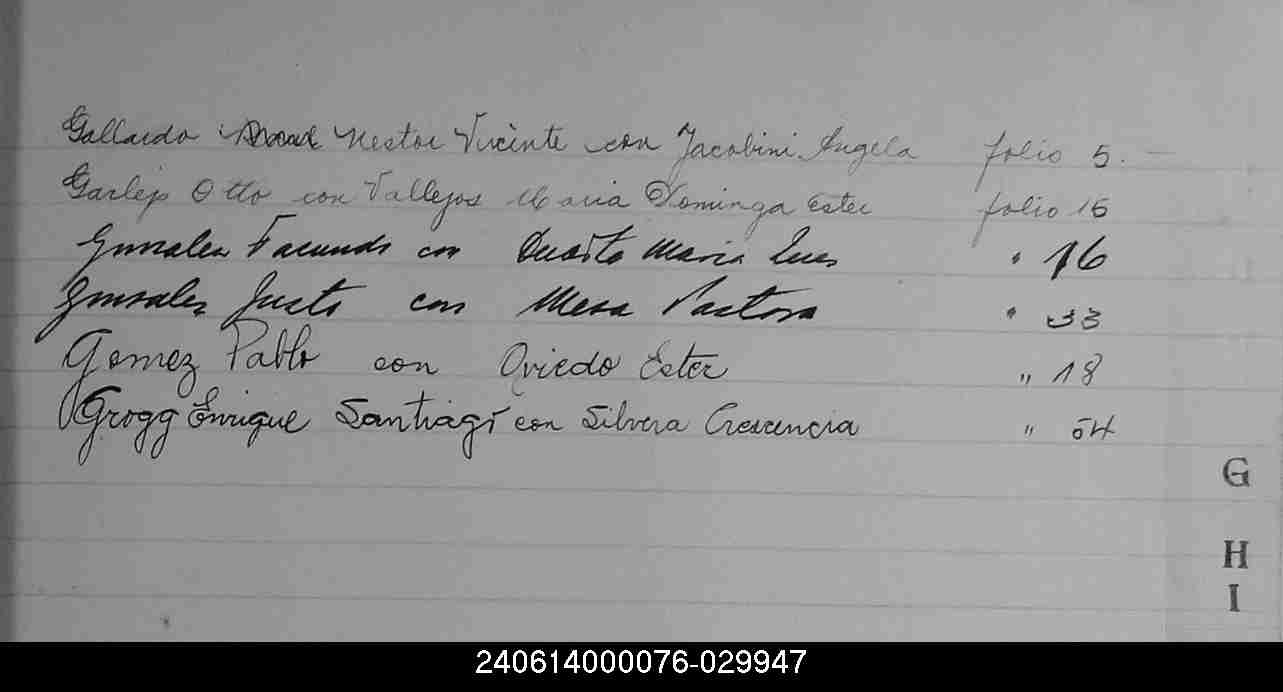 Gallardo Nestor Vicente con Jacobini Angela folio 5.-
Garlep Otto con Vallejos Maria Dominga Ester folio 15
Gonzalez Facundo con Duarte Maria Ines " 16
Gonzalez Justo con Mesa Pastora " 33
Gomez Pablo con Oviedo Ester " 18
Grogg Enrique Santiago con Silvera Crecencia " 54
G
H
I
240614000076-029947